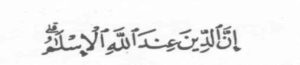 اِنَّ ٱلدِّينَ عِندَ ٱللَّهِ ٱلْإِسْلَٰمُۗ